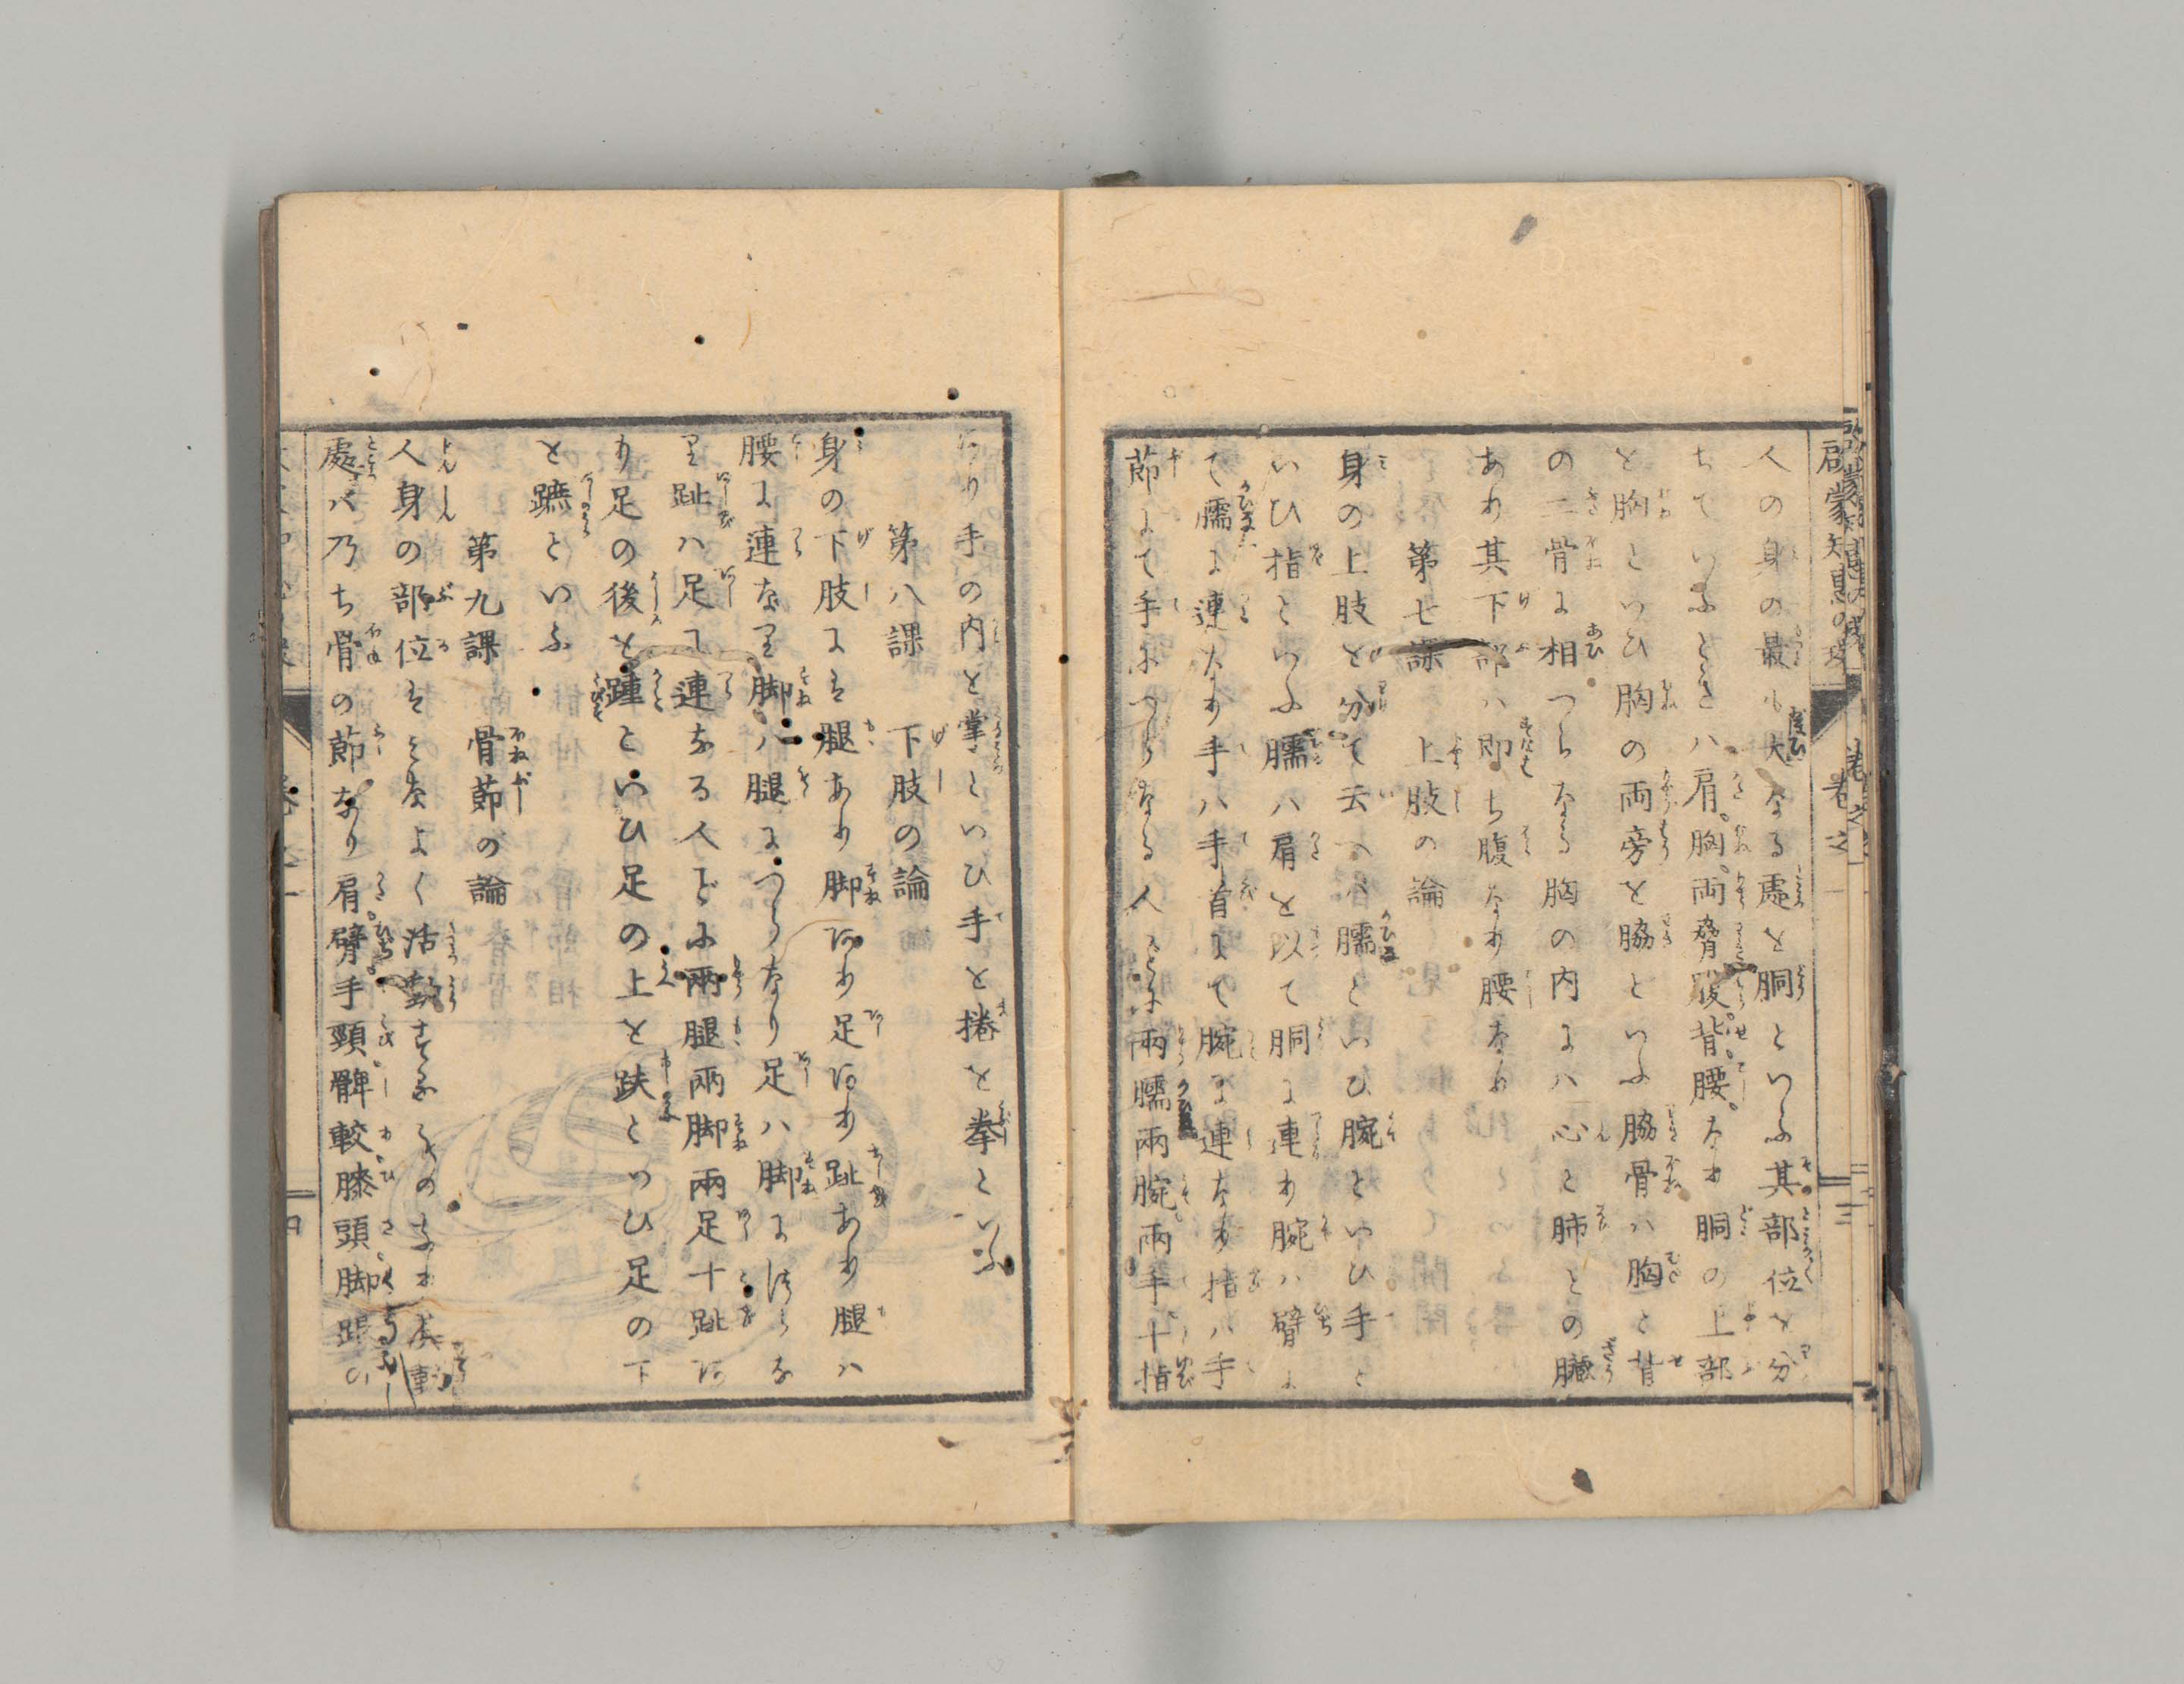 啓蒙知恵の環
巻之一
人の身の最も大なる處を胴といふ其部位を分
ちていふときハ肩胸両脅腹背腰なり胴の上部
を胸といひ胸の両旁を脇といふ脇骨ハ胸と背
の二骨に相つらなる胸の内にハ心と肺との臓
あり其下部ハ即ち腹なり腰なり
第七課 上肢の論
身の上肢を分て云へハ臑といひ腕といひ手と
いひ指といふ臑ハ肩を以て胴に連り腕ハ臂に
て臑に連なり手ハ手首にて腕に連なり指ハ手
節にて手につらなる人ことに両臑両腕両手十指
あり手の内を掌といひ手を捲を拳といふ
第八課 下肢の論
身の下肢にハ腿あり脚あり足あり趾あり腿ハ
腰に連なり脚ハ腿につらなり足ハ脚につらな
り趾ハ足に連なる人ごとに両腿両脚両足十趾あ
り足の後を踵といひ足の上を趺といひ足の下
を蹠といふ
第九課 骨節の論
人身の部位ハそなよく活動するものなり其動
處ハ乃ち骨の節なり肩臂手頸髀較膝頭脚踝の
四